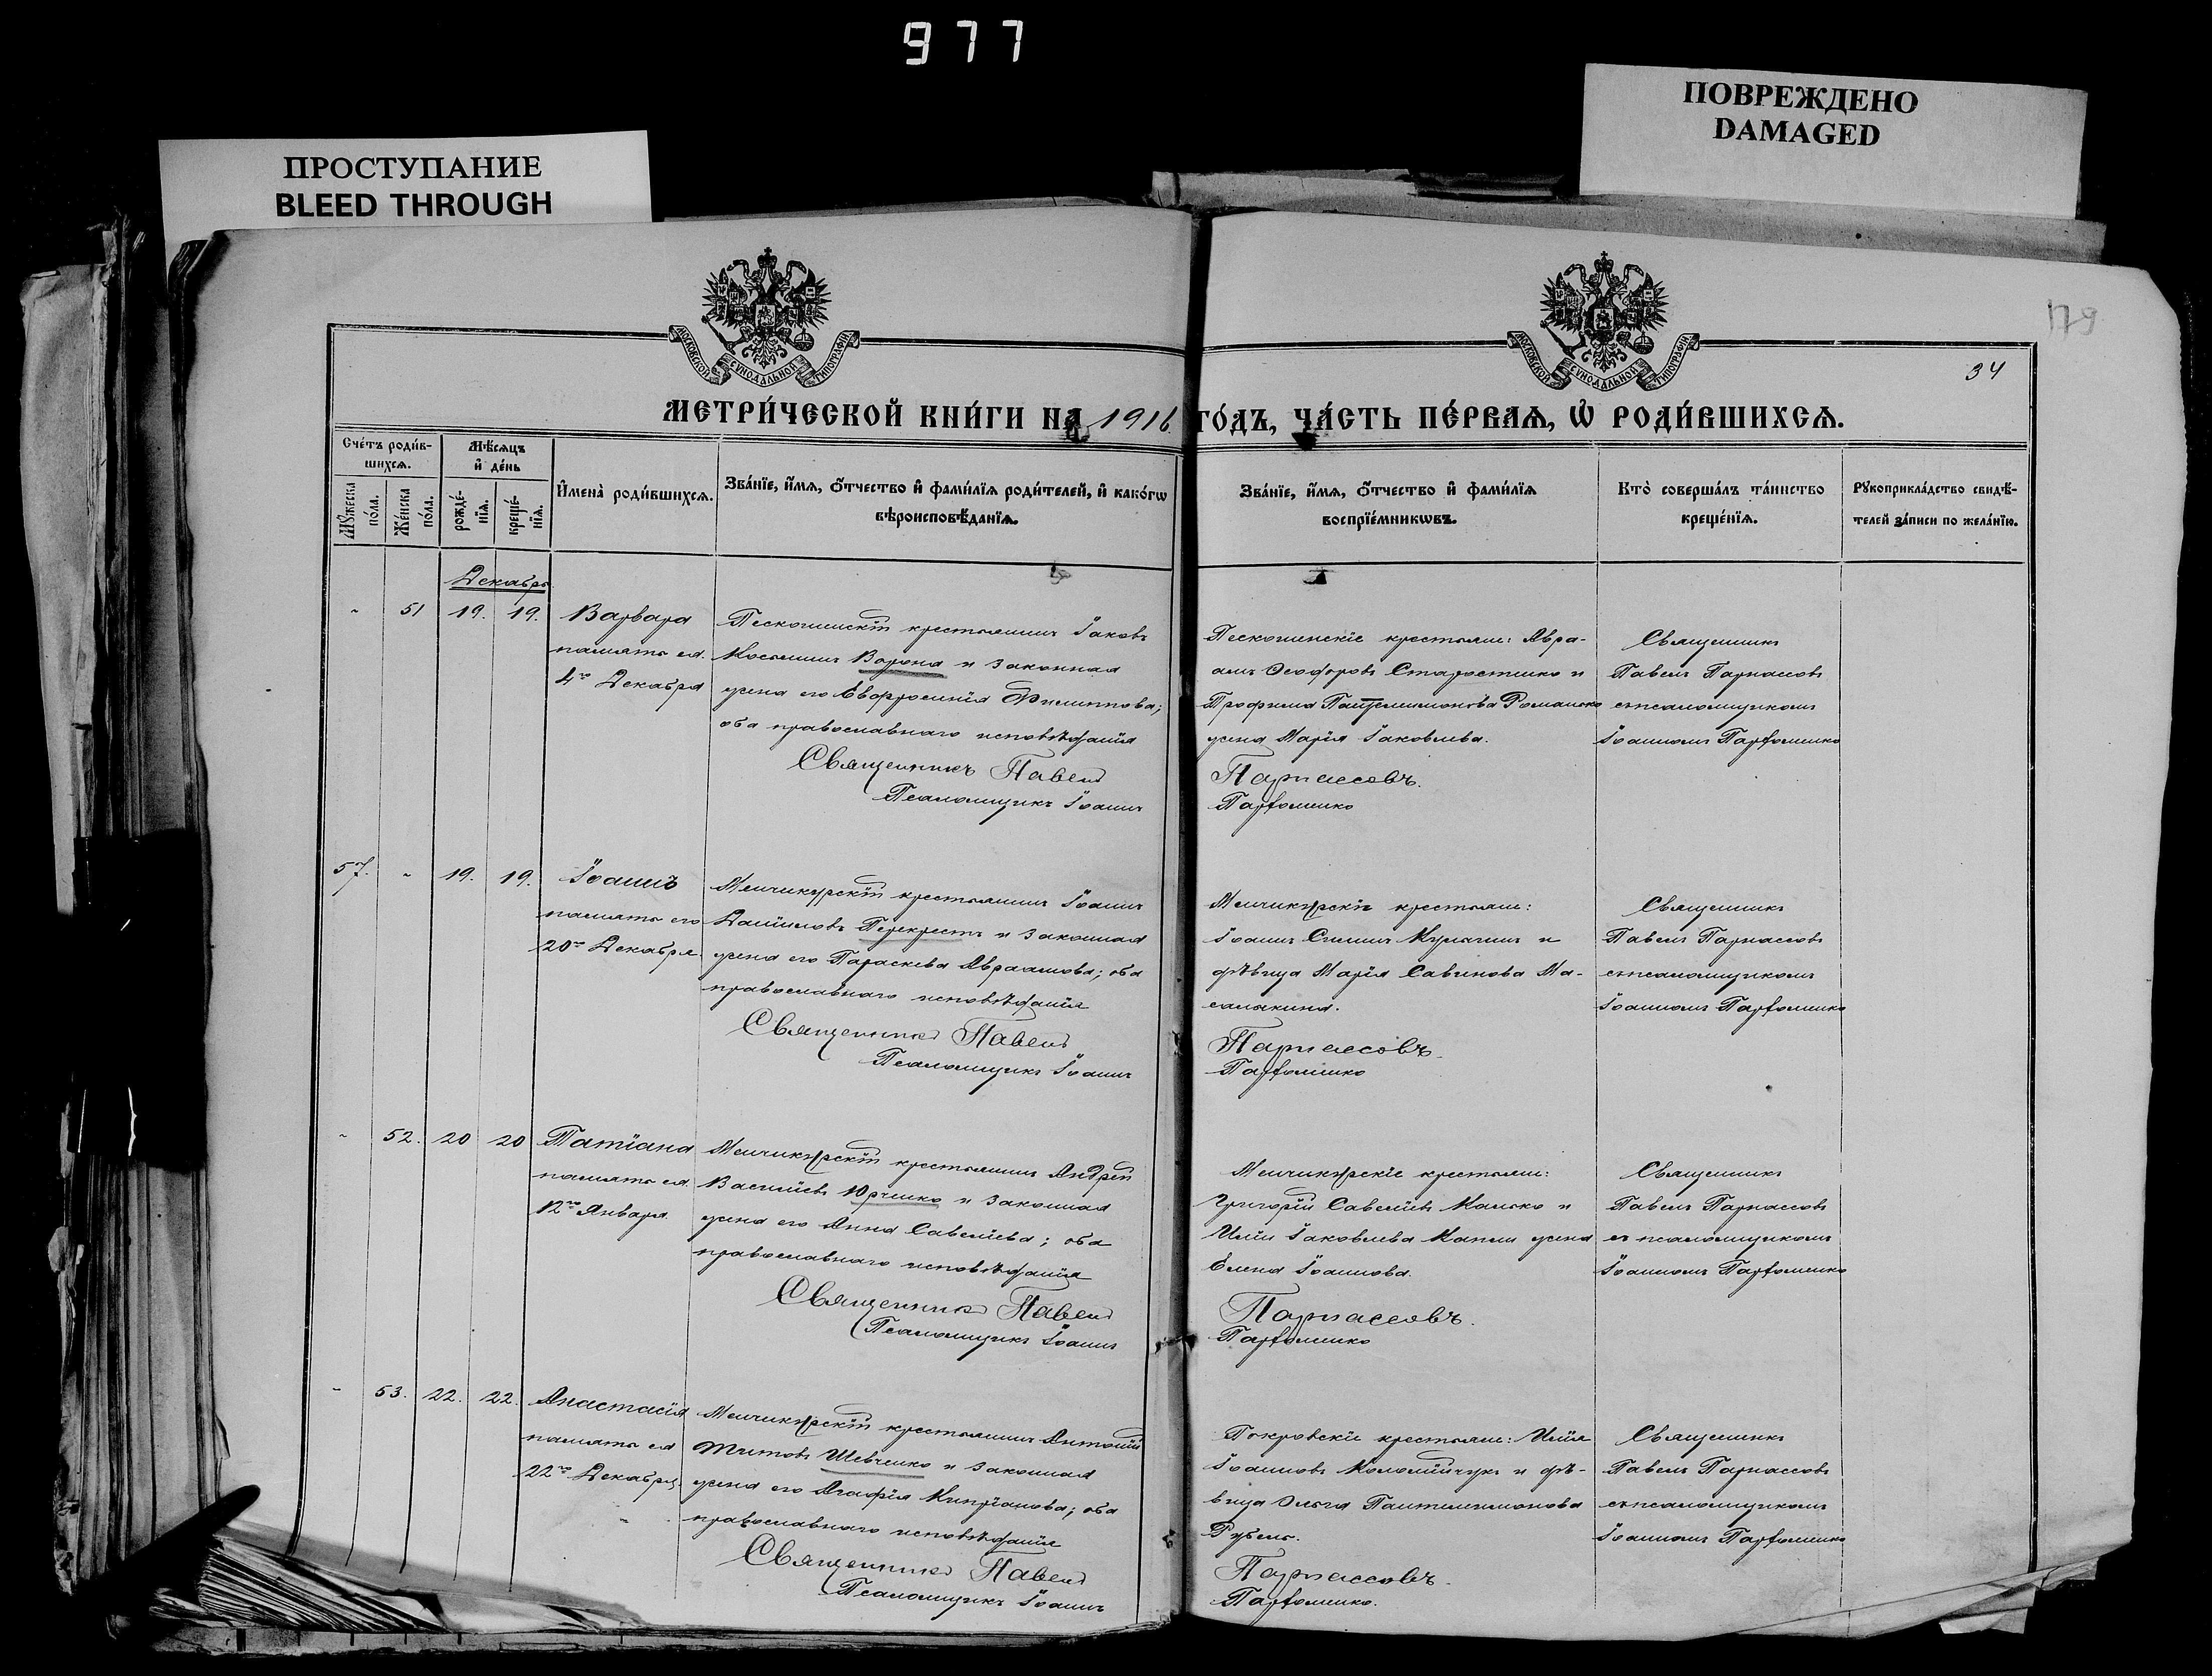 977
ПОВРЕЖДЕНО
DAMAGED
ПРОСТУПАНИЕ
BLEED THROUGH
МОСКОВСКОЙ СУНОДАЛЬНОЙ ТИПОГРАФІИ
МОСКОВСКОЙ СУНОДАЛЬНОЙ ТИПОГРАФІИ
179
34
МЕТРИ́ЧЕСКОЙ КНИ́ГИ НА 1916 ГО́ДЪ, ЧА́СТЬ ПЕ́РВАЯ, Ѡ РОДИ́ВШИХСЯ.
Сче́тъ роди́в-
шихся.
Мѣ́сяцъ
и де́нь
Му́жеска
по́ла.
Же́нска
по́ла.
рожде́-
нїя.
креще́-
нїя.
Имена̀ роди́вшихся.
Зва́нїе, и́мя, о́тчество и фами́лїя роди́телей, и како́гѡ
вѣроисповѣ́данїя.
Зва́нїе, и́мя, о́тчество и фами́лїя
воспрїе́мникѡвъ.
Кто̀ соверша́лъ та́инство
креще́нїя.
Рꙋкоприкла́дство свидѣ́-
телей за́писи по жела́нїю.
Декабрь
- 51 19. 19. Варвара
память ея
4го Декабря
крестьянинъ Іаковъ
Косьминъ Ворона и законная
жена его Евфросинія Филиппова;
оба православнаго исповѣданія
Священникъ Павелъ
Псаломщикъ Іоаннъ
крестьяне: Авра-
амъ Ѳеодоровъ Старостенко и
Трофима Пантелимонова Романенко
жена Марія Іаковлева.
Парнассовъ.
Парфоменко
Священникъ
Павелъ Парнассовъ
съ псаломщикомъ
Іоанномъ Парфоменко
57. - 19. 19. Іоаннъ
память его
20го Декабря
Менчикурскій крестьянинъ Іоаннъ
Даниловъ Перекрестъ и законная
жена его Параскева Авраамова; оба
православнаго исповѣданія
Священникъ Павелъ
Псаломщикъ Іоаннъ
Менчикурскіе крестьяне:
Іоаннъ
дѣвица Марія Савинова Ма-
салыкина.
Парнассовъ.
Парфоменко
Священникъ
Павелъ Парнассовъ
съ псаломщикомъ
Іоанномъ Парфоменко
- 52. 20 20 Татіана
память ея
12го Января.
Менчикурскій крестьянинъ Андрей
Василіевъ Юрченко и законная
жена его Анна Савеліева; оба
православнаго исповѣданія
Священникъ Павелъ
Псаломщикъ Іоаннъ
Менчикурскіе крестьяне:
Григорій Савеліевъ и
Иліи Іаковлева жена
Елена Іоаннова.
Парнассовъ.
Парфоменко
Священникъ
Павелъ Парнассовъ
съ псаломщикомъ
Іоанномъ Парфоменко
- 53. 22. 22. Анастасія
память ея
22го Декабря.
Менчикурскій крестьянинъ Антоній
Титовъ Шевченко и законная
жена его Агафія Кипріанова; оба
православнаго исповѣданія
Священникъ Павелъ
Псаломщикъ Іоаннъ
Покровскіе крестьяне: Илія
Іоанновъ Коломійчукъ и дѣ-
вица Ольга Пантелимонова
Рубель.
Парнассовъ.
Парфоменко.
Священникъ
Павелъ Парнассовъ
съ псаломщикомъ
Іоанномъ Парфоменко